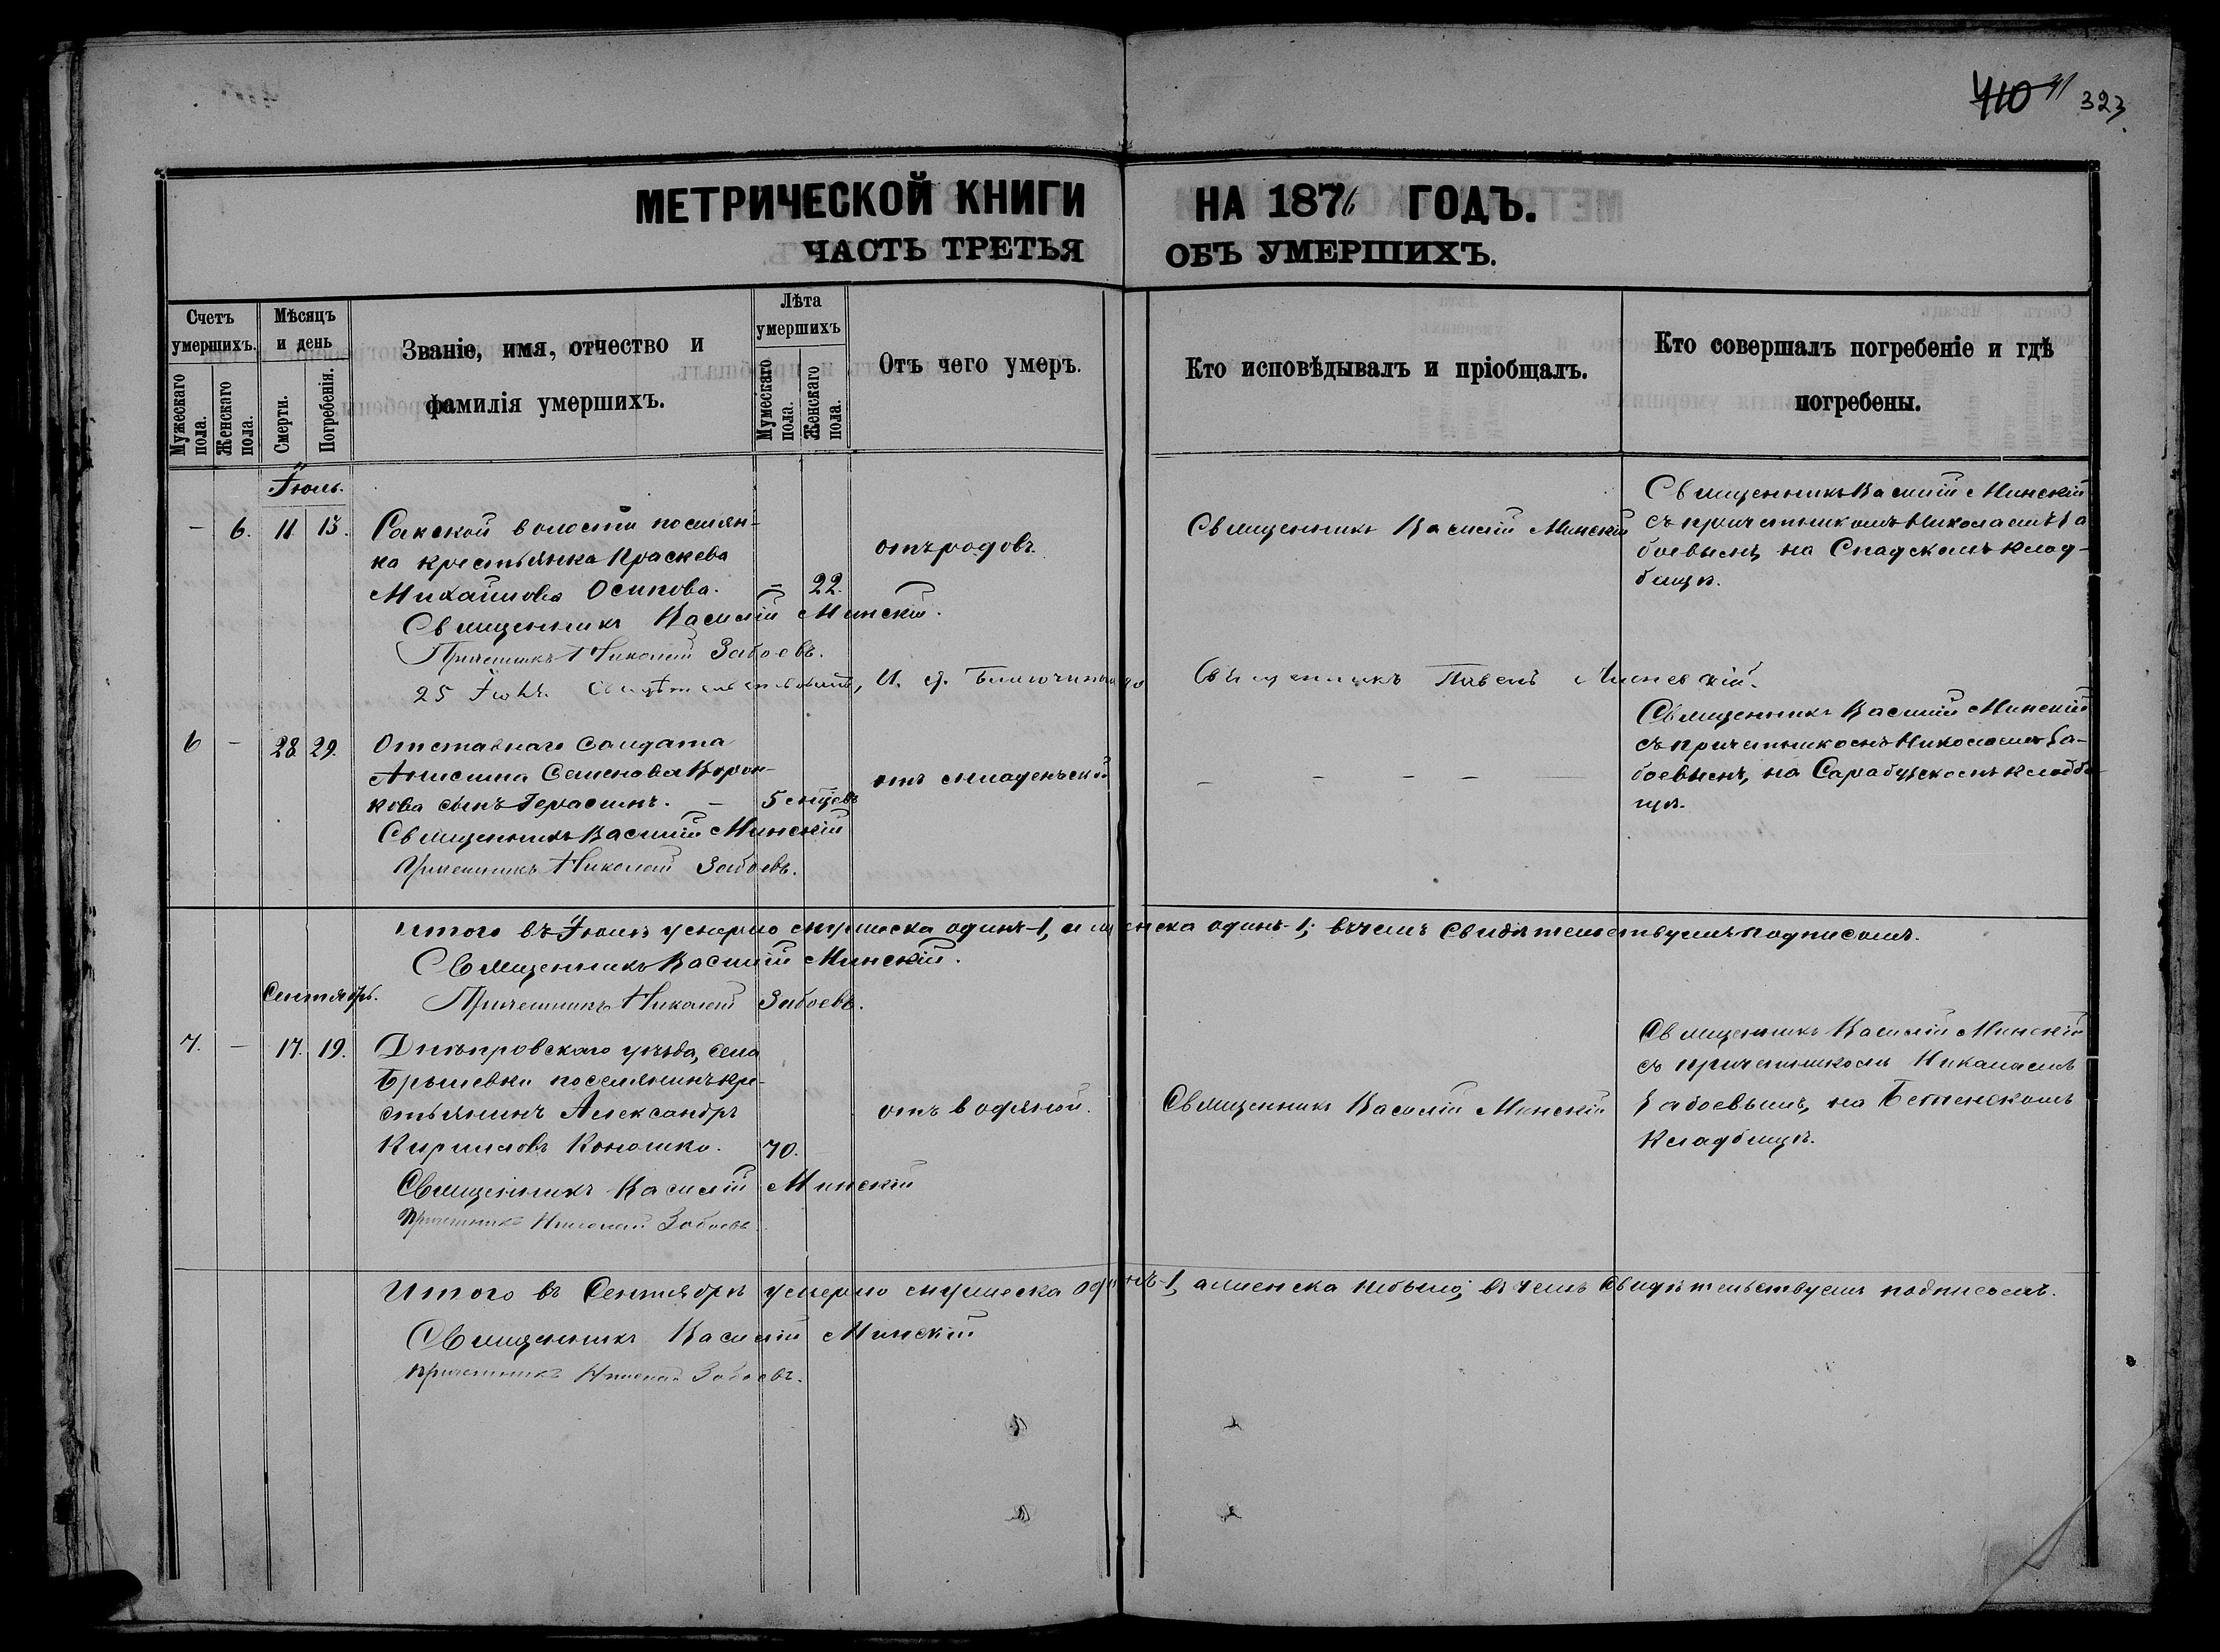 410 41 323
МЕТРИЧЕСКОЙ КНИГИ НА 1876 ГОДЪ.
ЧАСТЬ ТРЕТЬЯ ОБЪ УМЕРШИХЪ.
Счетъ умершихъ.
Мужескаго пола.
Женскаго пола.
Мѣсяцъ и день
Смерти.
Погребенія.
Званіе, имя, отчество и
фамилія умершихъ.
Лѣта умершихъ
Мужескаго пола.
Женскаго пола.
Отъ чего умеръ.
Кто исповѣдывалъ и пріобщалъ.
Кто совершалъ погребеніе и гдѣ
погребены.
Іюль.
– 6. 11. 13.
Сакской волости поселян-
ка крестьянка Праскева
Михайлова Осипова. – 22.
отъ родовъ.
Священникъ Василій Минскій
Священникъ Василій Минскій
съ причетникомъ Николаемъ За
боевымъ, на Спадскомъ клад-
бищѣ.
Священникъ Василій Минскій.
Причетникъ Николай Забоевъ.
25 Іюля. И. д. Благочиннаго Священникъ Павелъ
6 – 28 29.
Отставнаго солдата
Анисима Семенова Ворон-
кова сынъ Герасимъ. – 5 мцевъ
отъ младенческой
– – – –
Священникъ Василій Минскій
съ причетникомъ Николаемъ За-
боевымъ, на Сарабузскомъ кладби
щѣ.
Священникъ Василій Минскій
Причетникъ Николай Забоевъ.
Итого въ Іюлѣ умерло мужеска одинъ-1, а женска одинъ-1; въ чемъ свидѣтельствуемъ подписомъ.
Священникъ Василій Минскій.
Причетникъ Николай Забоевъ.
Сентябрь.
7. – 17. 19.
Днѣпровскаго уѣзда, села
поселянинъ кре-
стьянинъ Александръ
Кириловъ Коношко. 70.
отъ водяной.
Священникъ Василій Минскій
Священникъ Василій Минскій
съ причетникомъ Николаемъ
Забоевымъ, на
кладбищѣ.
Священникъ Василій Минскій
Причетникъ Николай Забоевъ
Итого въ Сентябрѣ умерло мужеска одинъ-1, а женска небыло; въ чемъ свидѣтельствуемъ подписомъ.
Священникъ Василій Минскій
Причетникъ Николай Забоевъ.